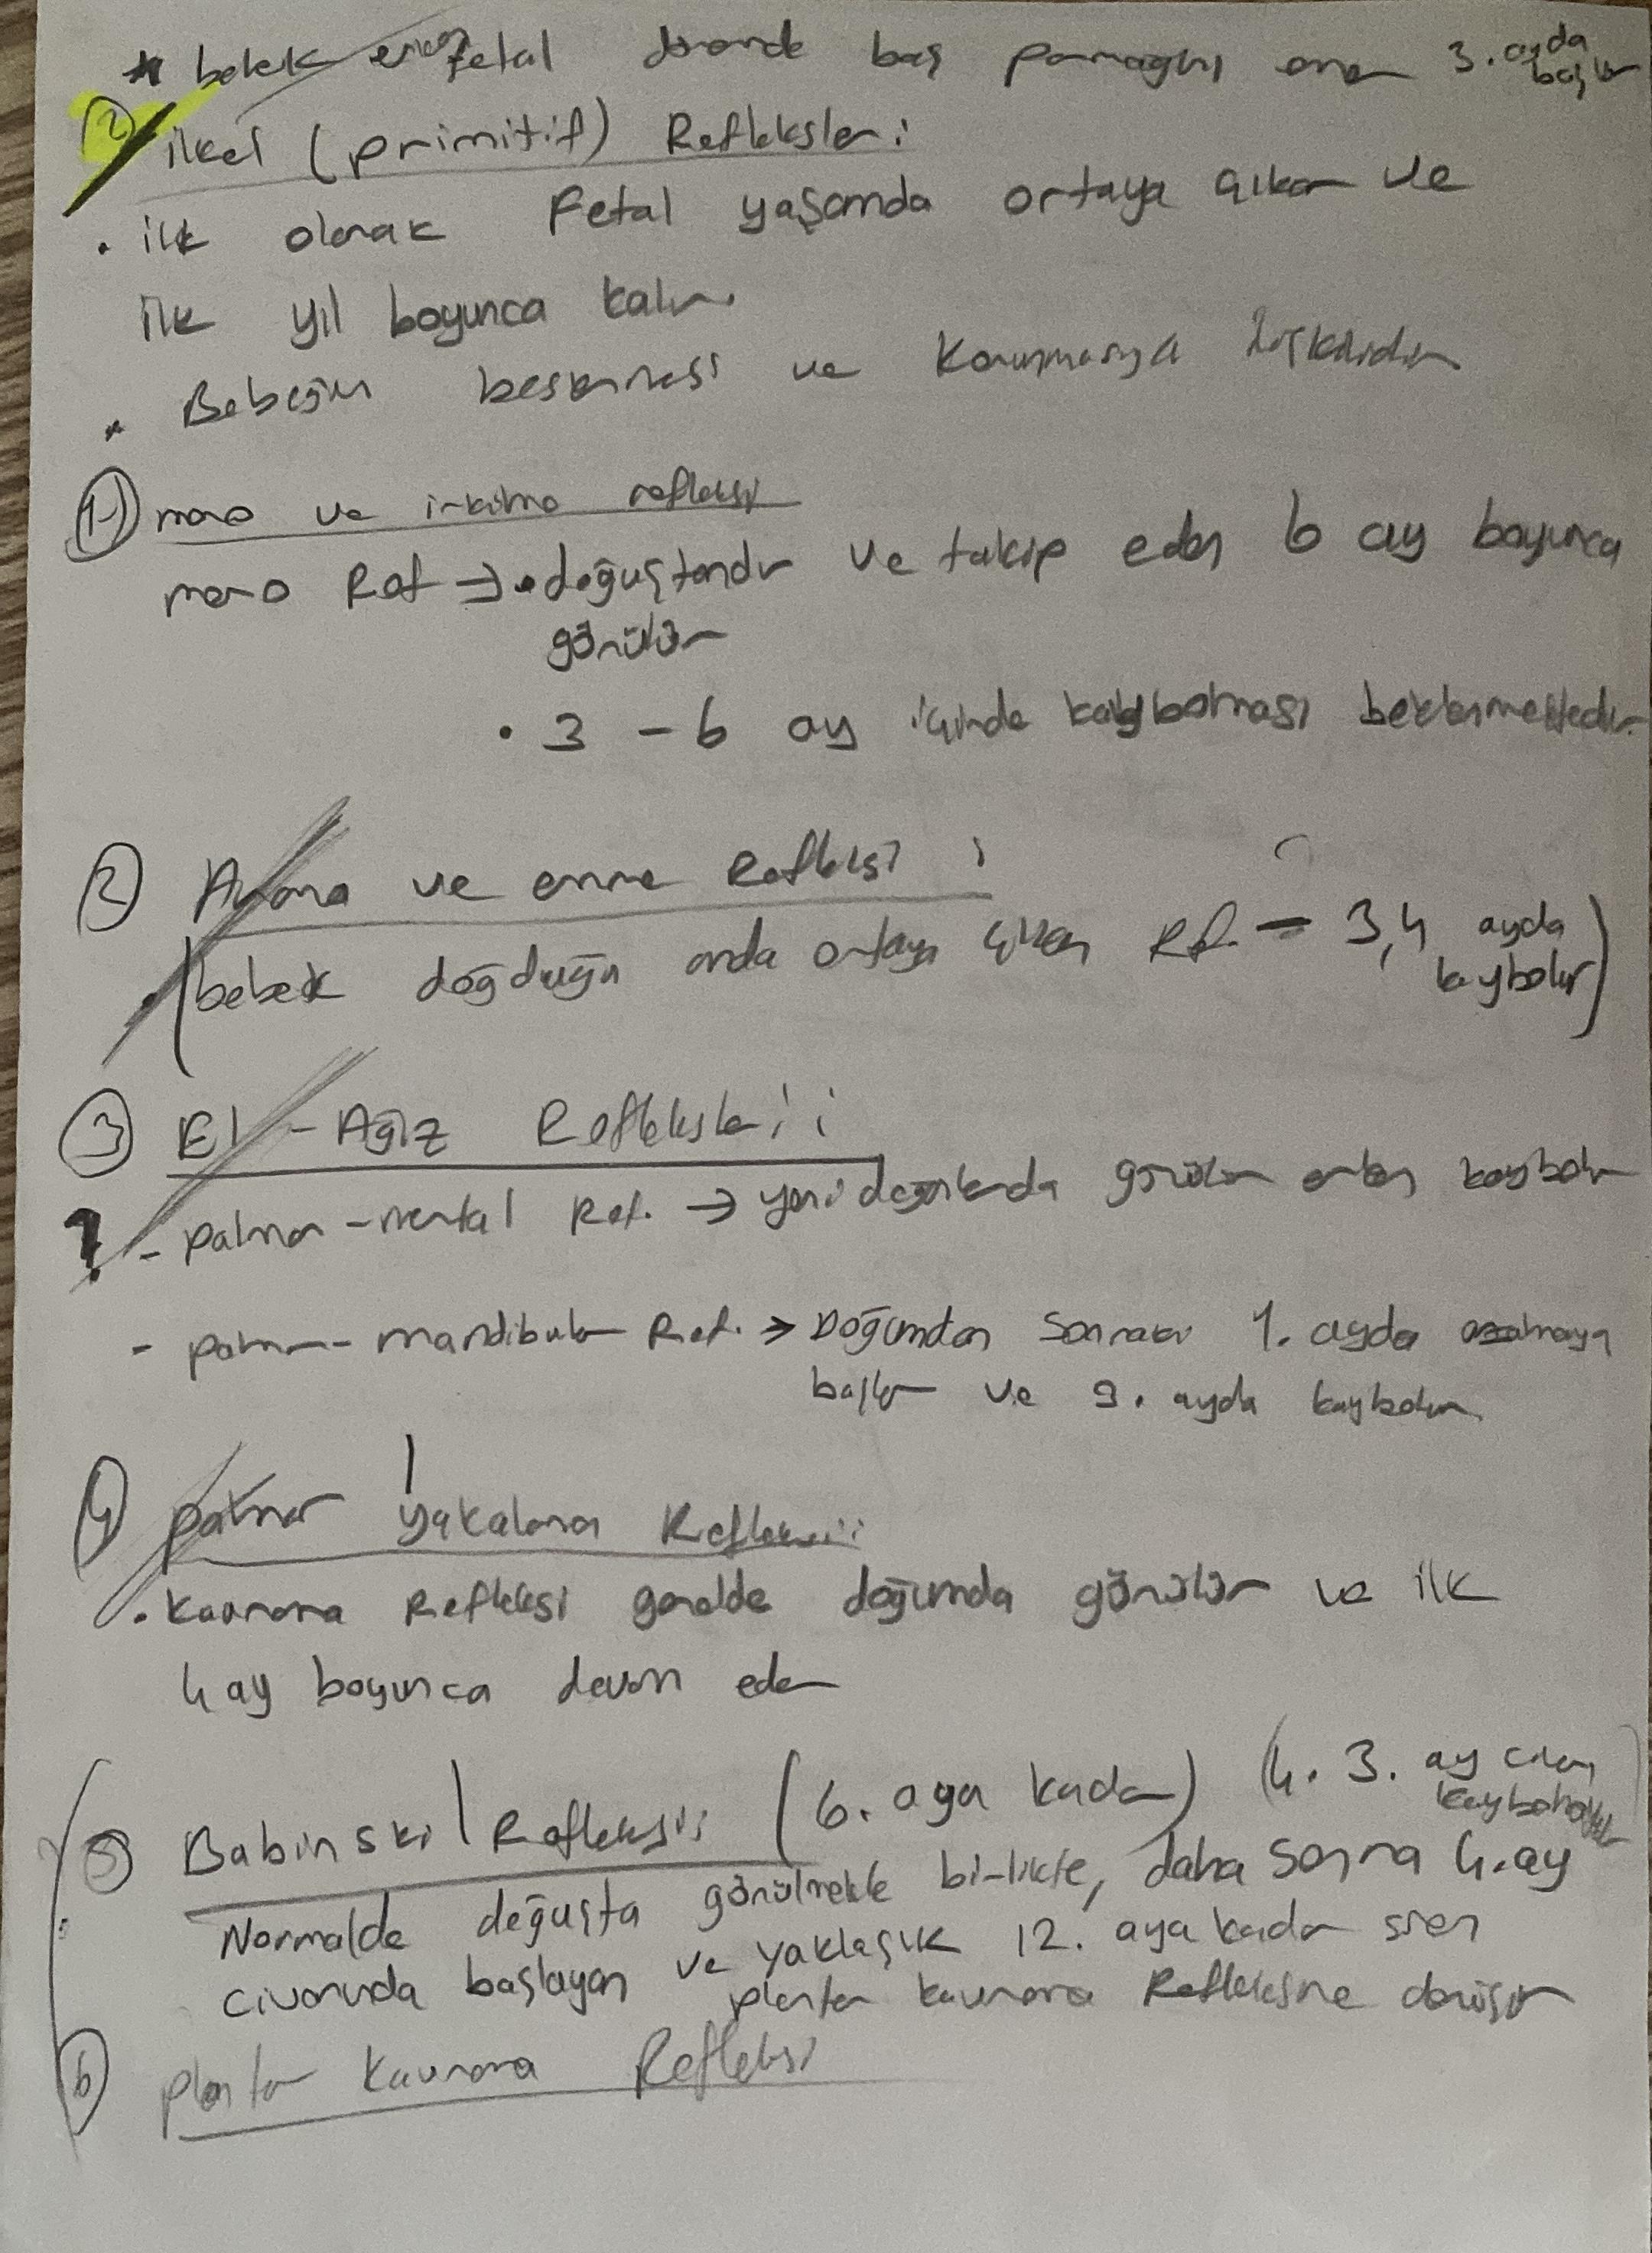 * bebek erken fetal dönemde baş parmağını emer 3. ayda başlar
2) ilkel (primitif) Refleksler:
• ilk olarak Fetal yaşamda ortaya çıkar ve
ilk yıl boyunca kalır.
• Bebeğin beslenmesi ve Korunmasıyla ilişkilidir
1-) moro ve irkilme refleksi
moro Ref → • doğuştandır ve takip eden 6 ay boyunca
görülür
• 3 - 6 ay içinde kaybolması beklenmektedir.
2) Arama ve emme Refleksi :
• (bebek doğduğu anda ortaya çıkan Rf. - 3,4 ayda
kaybolur)
3) El - Ağız Refleksleri :
? - palmar - mental Ref. → yeni doğanlarda görülür erken kaybolur
- palmar - mandibular Ref. → Doğumdan sonraki 1. ayda azalmaya
başlar ve 3. ayda kaybolur.
4) palmar yakalama Refleksi:
• Kavrama Refleksi genelde doğumda görülür ve ilk
4 ay boyunca devam eder
5) Babinski Refleksi: (6. aya kadar) (4. 3. ay
Normalde doğuşta görülmekle birlikte, daha sonra 4. ay
civarında başlayan ve yaklaşık 12. aya kadar süren
plantar kavrama Refleksine dönüşür
6) plantar Kavrama Refleksi